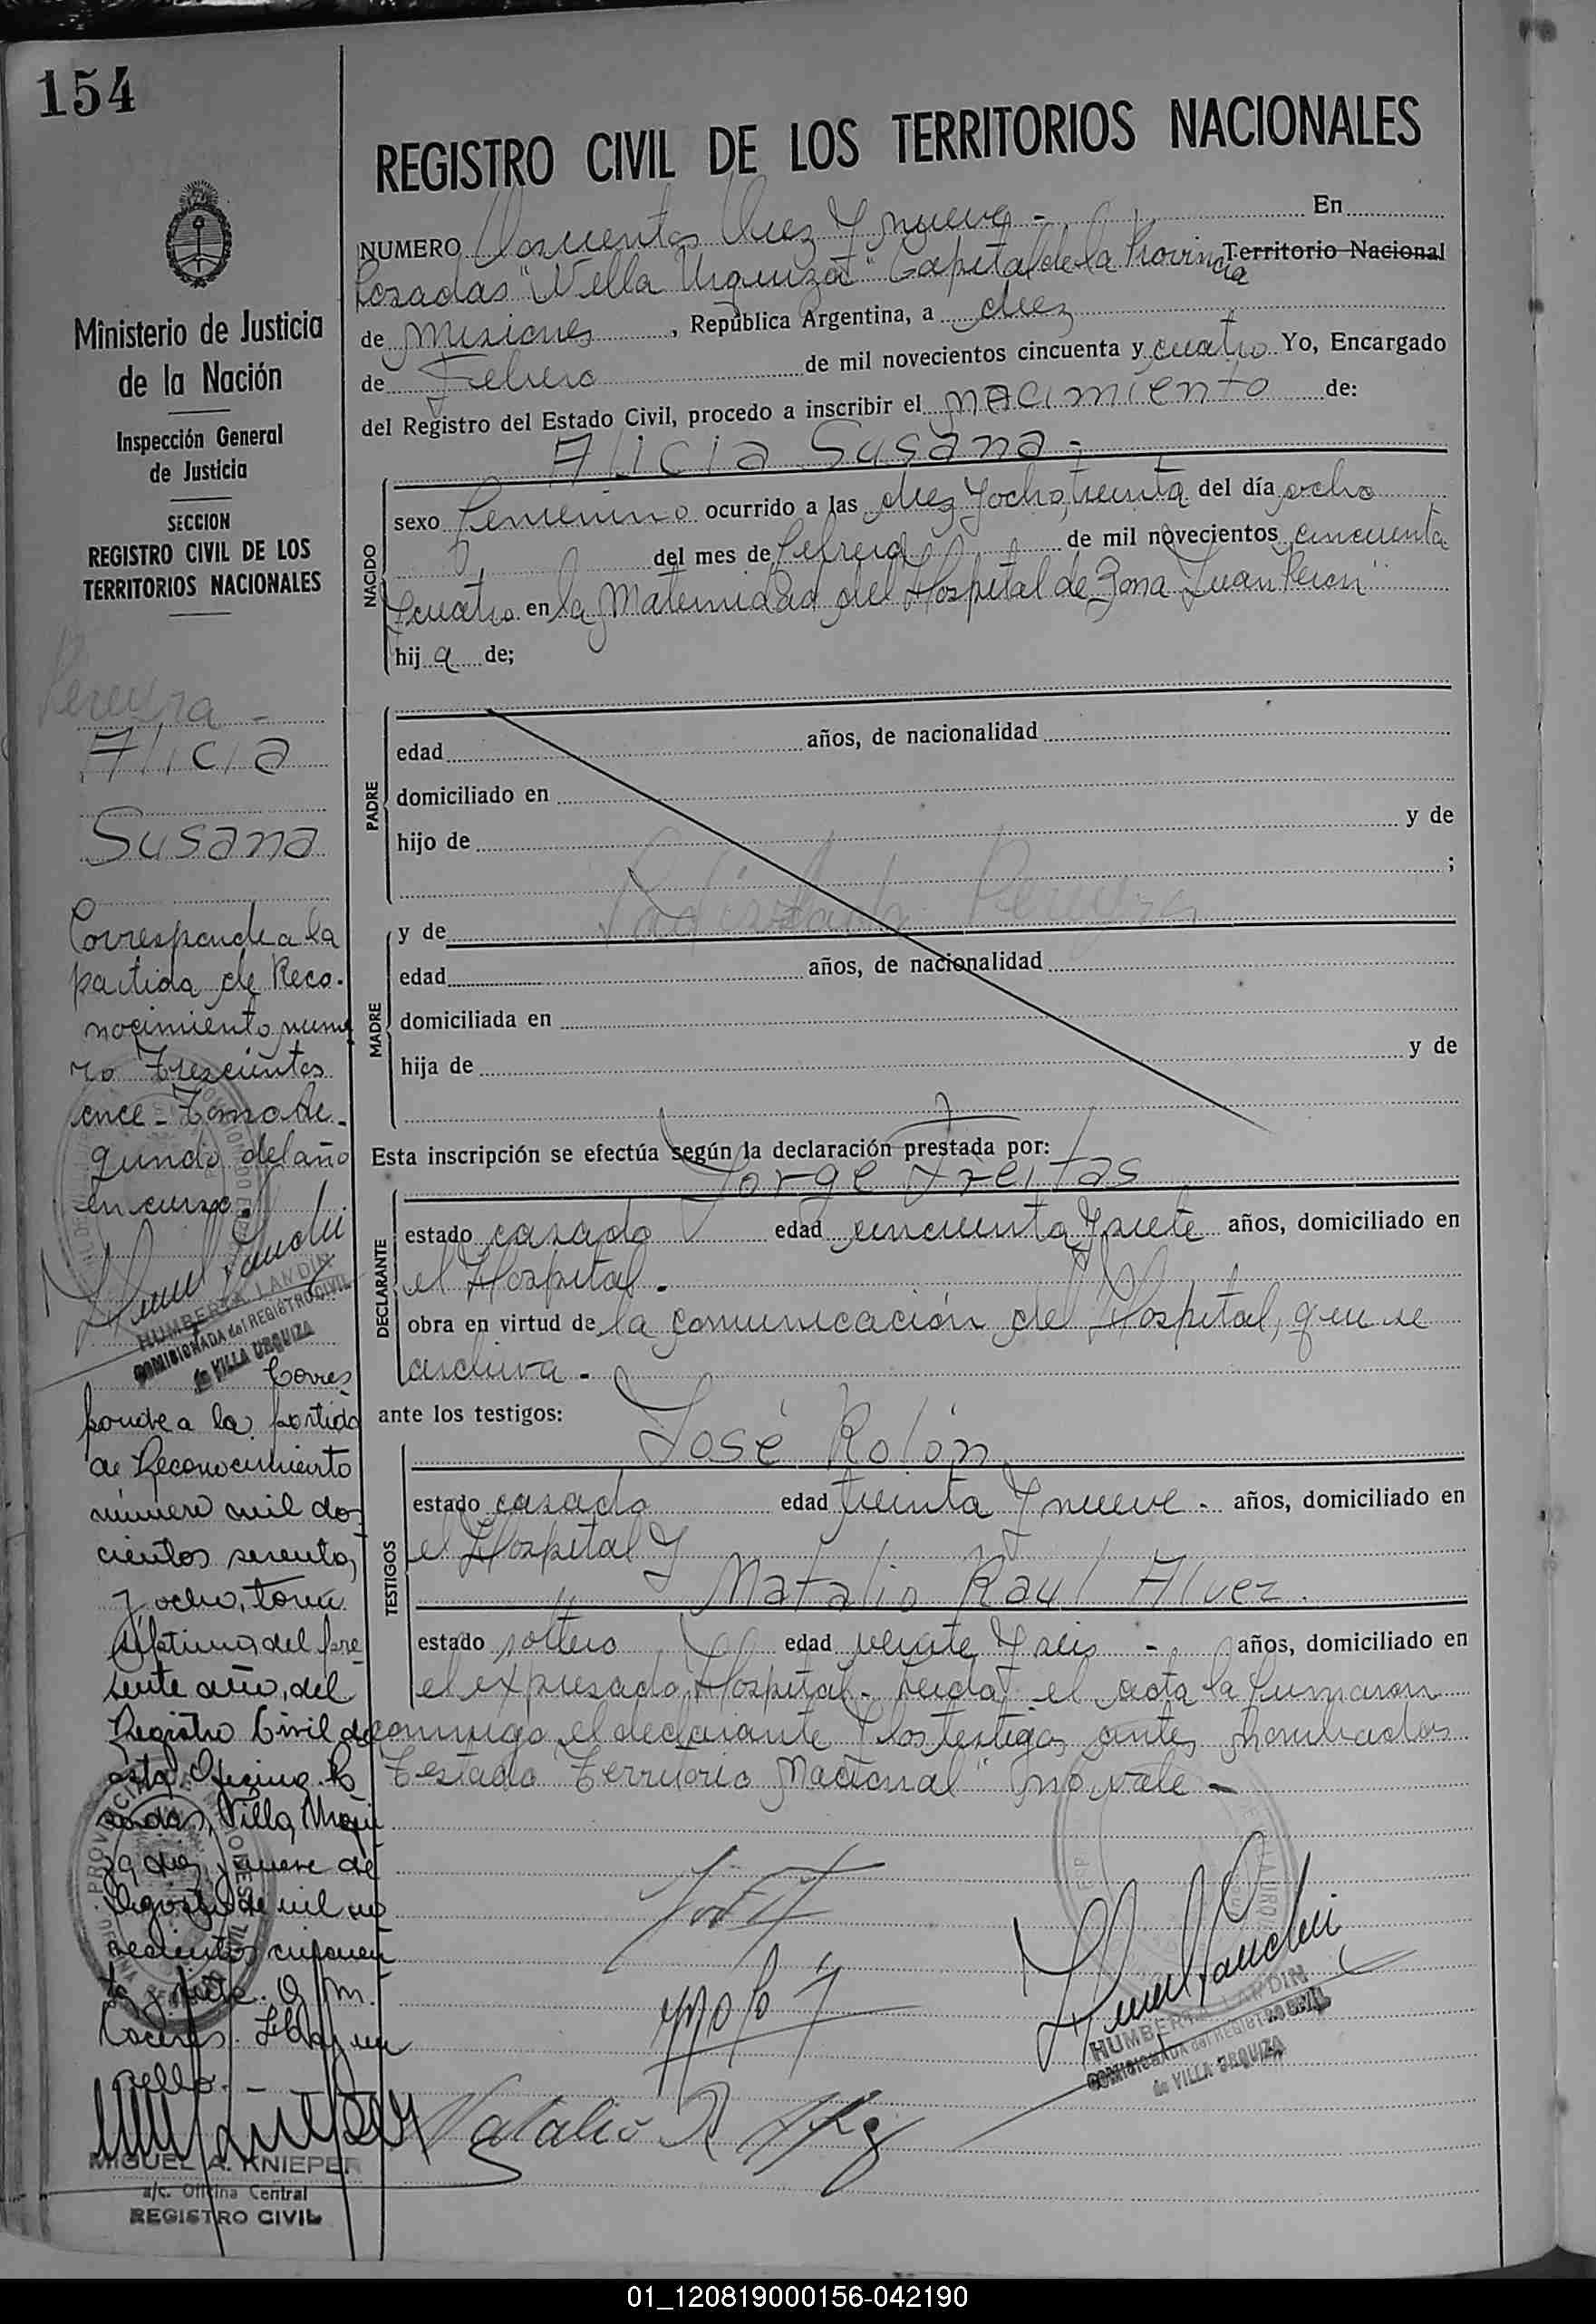 154
REGISTRO CIVIL DE LOS TERRITORIOS NACIONALES
Ministerio de Justicia
de la Nación
Inspección General
de Justicia
SECCION
REGISTRO CIVIL DE LOS
TERRITORIOS NACIONALES
Pereyra -
Alicia
Susana
Corresponde a la
partida de Reco-
nocimiento núme
ro trescientos
once - Tomo Se-
gundo del año
en curso.
HUMBERTA LANDIN
COMISIONADA del REGISTRO CIVIL
de VILLA URQUIZA
Corres
ponde a la partida
de Reconocimiento
número mil dos
cientos sesenta
y ocho, tomo
séptimo, del pre
sente año, del
Registro Civil de
esta Oficina. Po
sadas, Villa Urqui
za, diez y nueve de
Agosto de mil no
vecientos cincuen
ta y siete.
MIGUEL A. KNIEPER
a/c. Oficina Central
REGISTRO CIVIL
NUMERO Doscientos diez y nueve - En
Posadas "Villa Urquiza" Capital de la Provincia Territorio Nacional
de Misiones , República Argentina, a diez
de Febrero de mil novecientos cincuenta y cuatro Yo, Encargado
del Registro del Estado Civil, procedo a inscribir el nacimiento de:
Alicia Susana -
NACIDO
sexo femenino ocurrido a las diez y ocho, treinta del día ocho
del mes de febrero de mil novecientos cincuenta
y cuatro en la Maternidad del Hospital de Zona "Juan Perón"
hij a de;
PADRE
edad años, de nacionalidad
domiciliado en
hijo de y de
;
MADRE
y de Pereyra
edad años, de nacionalidad
domiciliada en
hija de y de
Esta inscripción se efectúa según la declaración prestada por:
Jorge Freitas
DECLARANTE
estado casado edad cincuenta y siete años, domiciliado en
el Hospital -
obra en virtud de la comunicación del Hospital, que se
archiva -
ante los testigos:
José Rolón
TESTIGOS
estado casado edad treinta y nueve - años, domiciliado en
el Hospital y
Natalio Raul Alvez.
estado soltero edad veinte y seis - años, domiciliado en
el expresado Hospital - Leida el acta la firmaron
conmigo el declarante y los testigos antes nombrados
Testado "Territorio Nacional" no vale -
Natalio R
HUMBERTA LANDIN
COMISIONADA del REGISTRO CIVIL
de VILLA URQUIZA
01_120819000156-042190